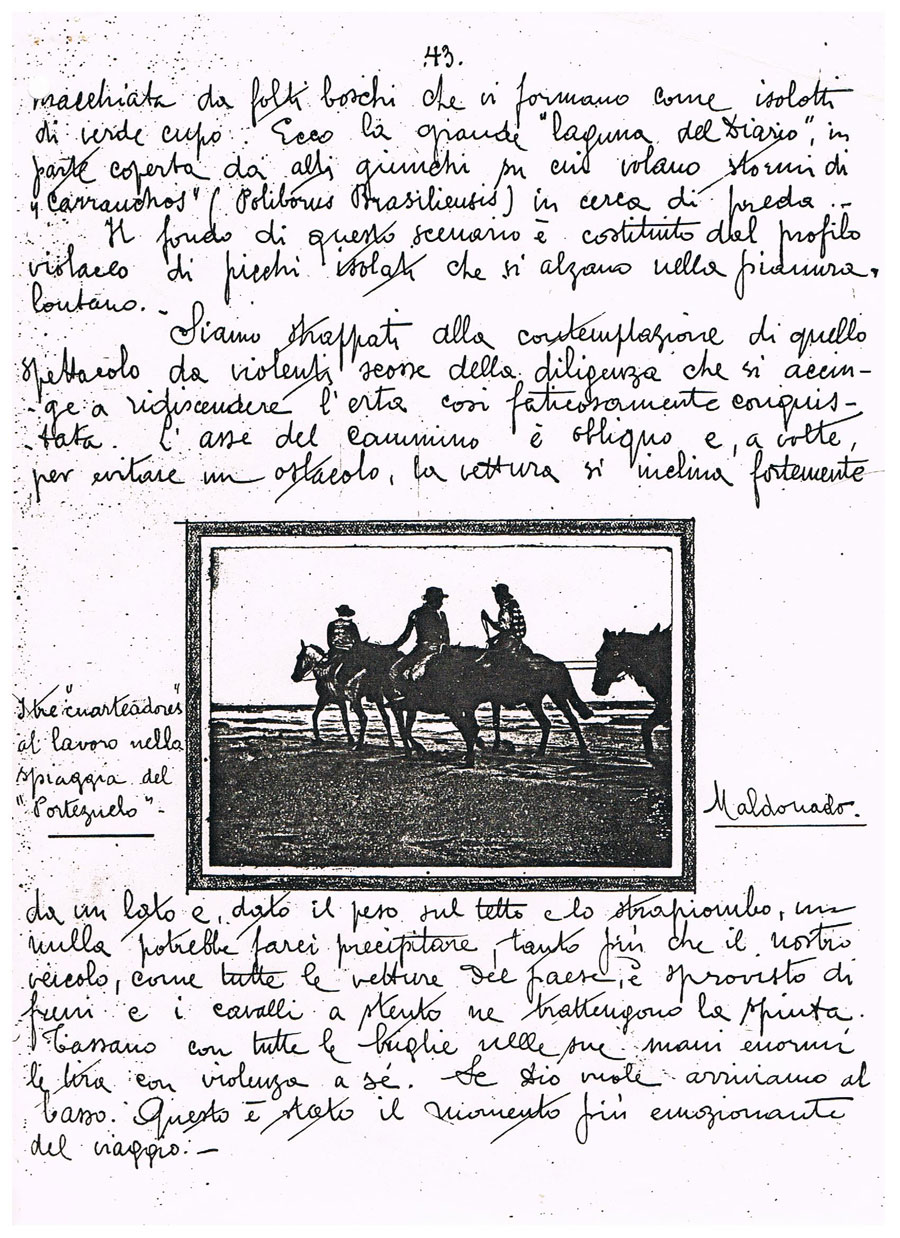 43.
macchiata da folti boschi che vi formano come isolotti
di verde cupo. Ecco là grande "laguna del Diario", in
parte coperta da alti giunchi su cui volano stormi di
"Carranchos" (Poliborus Brasiliensis) in cerca di preda.-
Il fondo di questo scenario è costituito dal profilo
violaceo di picchi isolati che si alzano nella pianura,
lontano.-
Siamo strappati alla contemplazione di quello
spettacolo da violenti scosse della diligenza che si accin-
-ge a ridiscendere l'erta così faticosamente conquis-
-tata. L'asse del cammino è obliquo e, a volte,
per evitare un ostacolo, la vettura si inclina fortemente
I tre "cuarteadores"
al lavoro nella
spiaggia del
"Portezuelo"-
Maldonado.
da un lato e, dato il peso sul tetto e lo strapiombo, un
nulla potrebbe farci precipitare, tanto più che il nostro
veicolo, come tutte le vetture del paese, è sprovisto di
freni e i cavalli a stento ne trattengono la spinta.
Tassano con tutte le briglie nelle sue mani enormi
le tira con violenza a sé. Se Dio vuole arriviamo al
basso. Questo è stato il momento più emozionante
del viaggio.-